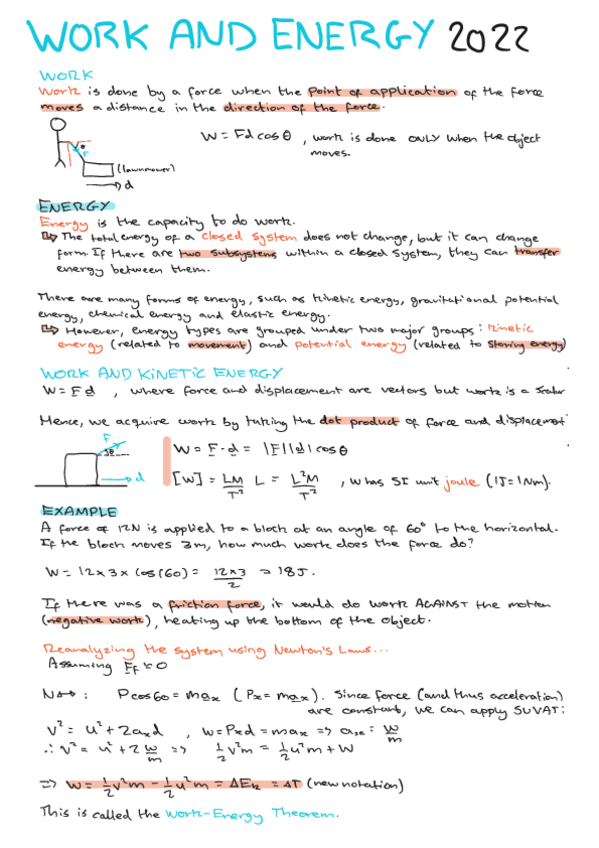 WORK AND ENERGY 2022
WORK
Work is done by a force when the point of application of the force
moves a distance in the direction of the force.
W = Fd cos θ , work is done ONLY when the object
moves.
F
θ
(lawnmower)
d
ENERGY
Energy is the capacity to do work.
↳ The total energy of a closed system does not change, but it can change
form. If there are two subsystems within a closed system, they can transfer
energy between them.
There are many forms of energy, such as kinetic energy, gravitational potential
energy, chemical energy and elastic energy.
↳ However, energy types are grouped under two major groups : kinetic
energy (related to movement) and potential energy (related to storing energy)
WORK AND KINETIC ENERGY
W = F d , where force and displacement are vectors but work is a scalar
Hence, we acquire work by taking the dot product of force and displacement
F
d
W = F · d = |F||d| cos θ
[W] = LM/T² L = L²M/T² , W has SI unit joule (1J = 1Nm).
EXAMPLE
A force of 12N is applied to a block at an angle of 60° to the horizontal.
If the block moves 3m, how much work does the force do?
W = 12 x 3 x cos(60) = 12x3/2 = 18J.
If there was a friction force, it would do work AGAINST the motion
(negative work), heating up the bottom of the object.
Reanalyzing the system using Newton's Laws...
Assuming Ff ≈ 0
N2↔ : Pcos60 = max (Px = max). Since force (and thus acceleration)
are constant, we can apply SUVAT:
v² = u² + 2axd , W = Pxd = max => ax = W/m
∴ v² = u² + 2 W/m => ½v²m = ½u²m + W
=> W = ½v²m - ½u²m = ΔEk = ΔT (new notation)
This is called the Work-Energy Theorem.